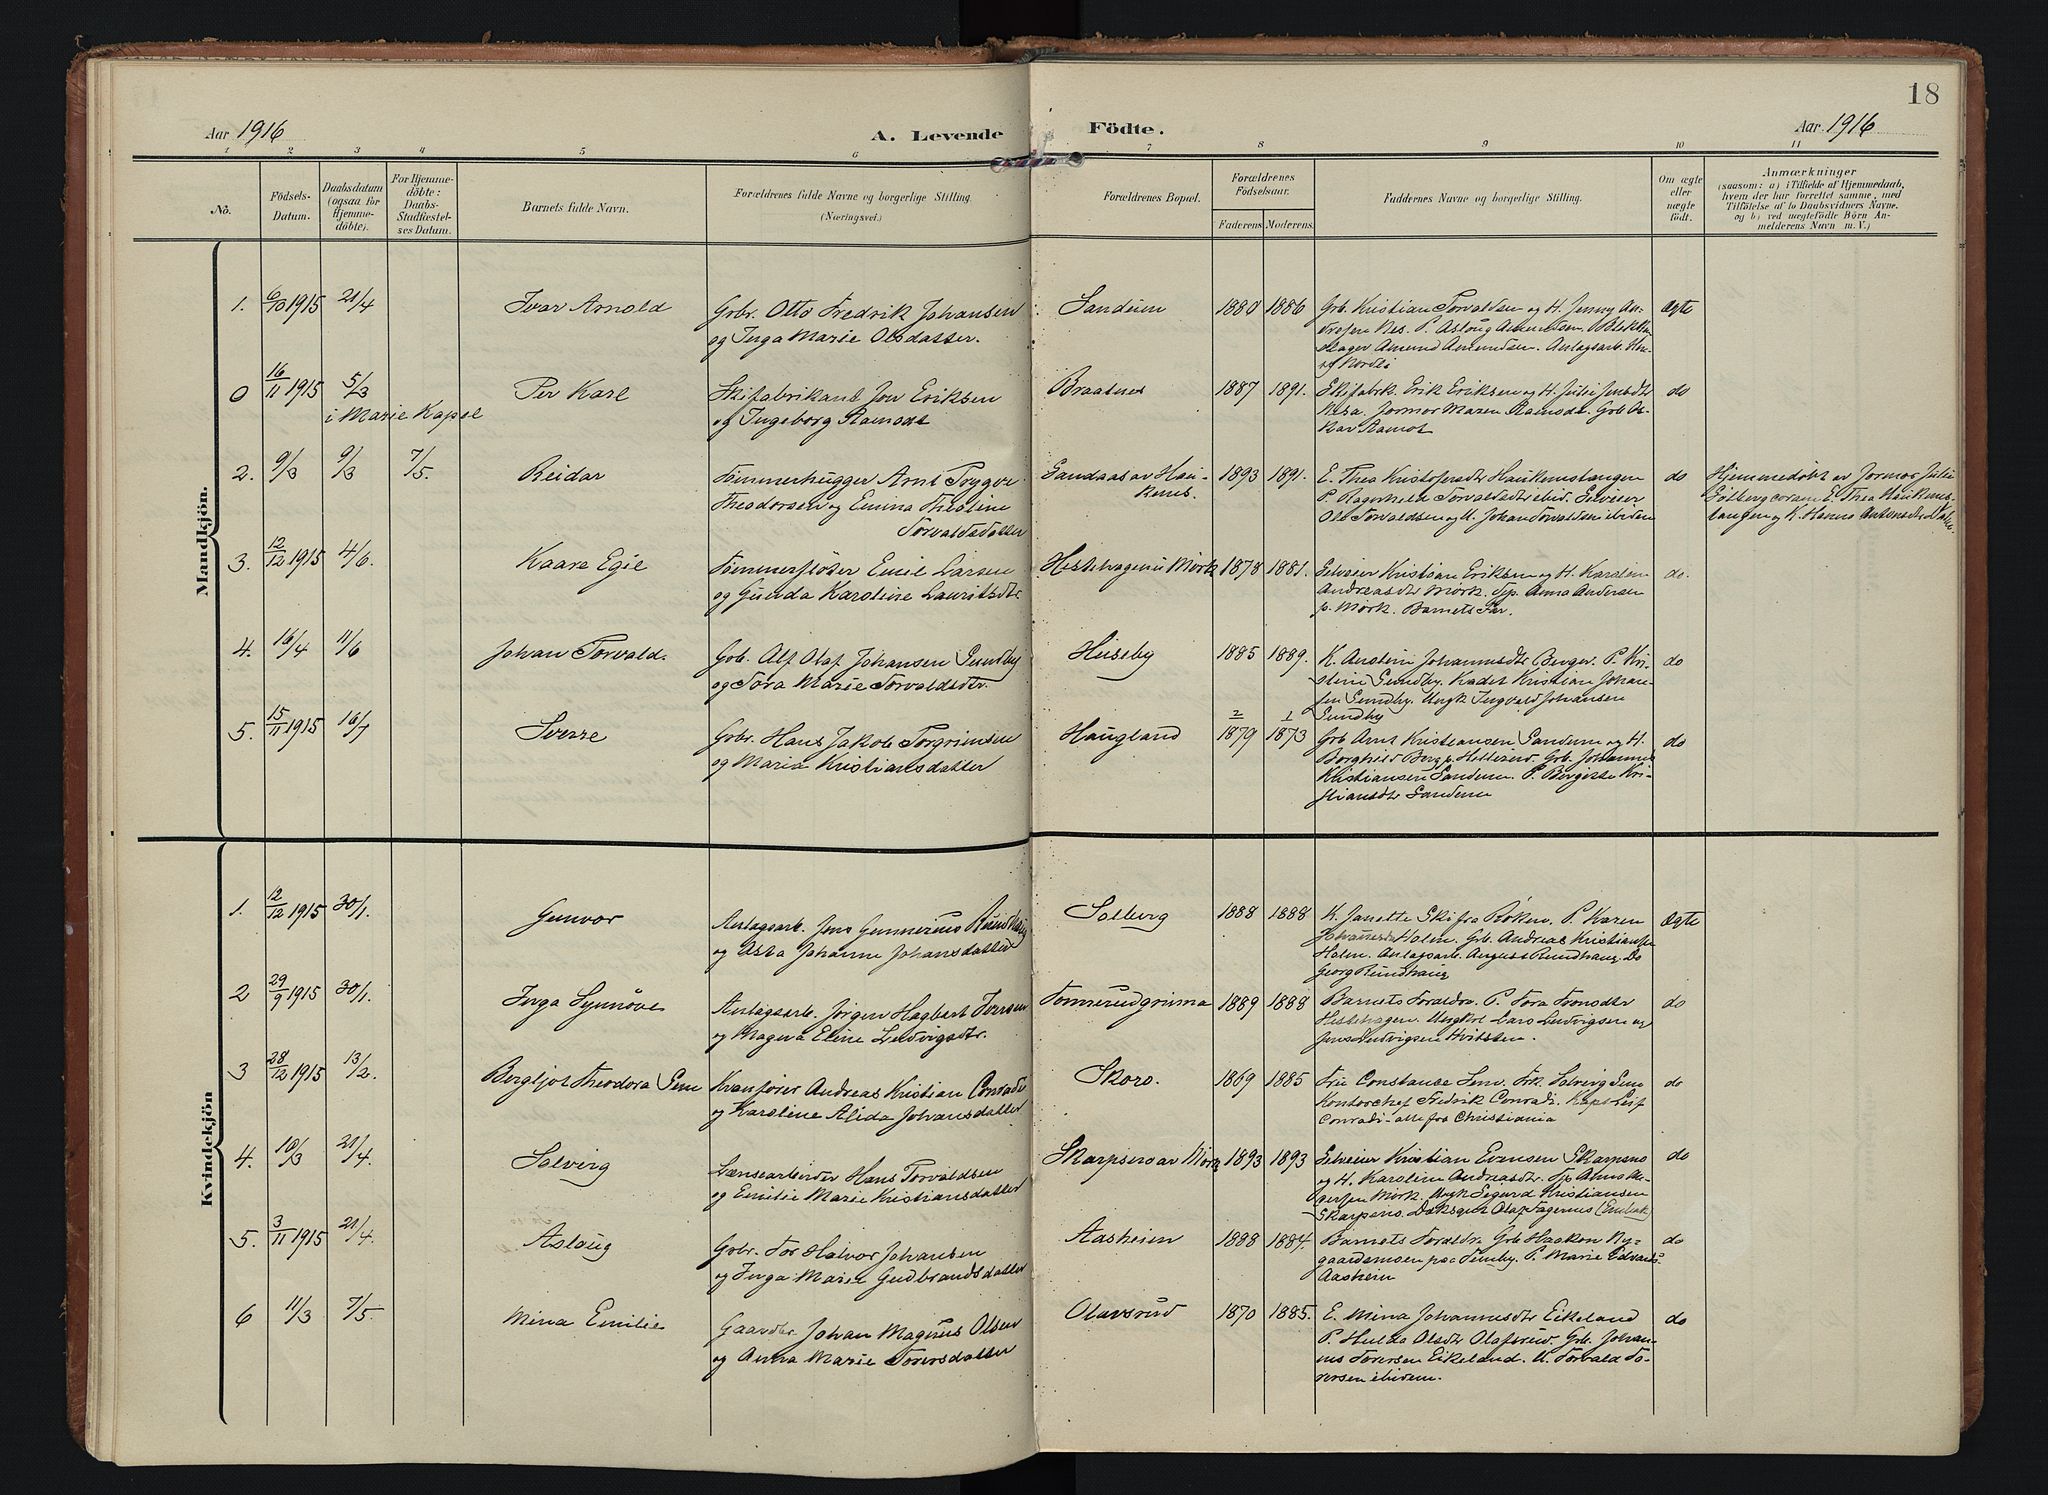 18
Aar 1916
A. Levende Födte.
Aar 1916
1 2 3 4 5 6 7 8 9 10 11
No.
Födsels-
Datum.
Daabsdatum
(ogsaa for
Hjemme-
döbte).
For Hjemme-
döbte:
Daabs-
Stadfæstel-
ses Datum.
Barnets fulde Navn.
Forældrenes fulde Navne og borgerlige Stilling
(Næringsvei.)
Forældrenes Bopæl.
Forældrenes
Födselsaar.
Faderens. Moderens.
Faddernes Navne og borgerlige Stilling.
Om ægte
eller
uægte
födt.
Anmærkninger
(saasom: a) i Tilfælde af Hjemmedaab,
hvem der har forrettet samme, med
Tilföielse af to Daabsvidners Navne.
og b) ved uægtefödte Börn An-
melderens Navn m. V.)
Mandkjön.
1. 6/10 1915 21/4 Ivar Arnold
Grbr. Otto Fredrik Johansen
og Inga Marie Olsdatter.
Sandum 1880 1886
Grb. Kristian Torvaldsen og H. Jenny An-
dresen Nes. P. Aslaug Amundsen. Blikken-
slager Amund Amundsen. Anlagsarb. 
og Nordli
Ægte
0 16/11 1915 5/3
i Marie Kapel
Per Karl
Skifabrikant Jon Eriksen
og Ingeborg Aamodt
Braatnes 1887 1891.
Skifabrik. Erik Eriksen og H. Julie Jensdtr
Nesa. Jormor Maren Aamodt. Grb Os-
kar Aamot
do
2. 9/3 9/3 7/5. Reidar
Tømmerhugger Arnt Trygve
Theodorsen og Emma Theoline
Torvaldsdatter
Sandaas av Hau-
kenes.
1893 1891.
E. Thea Kristofersdtr Haukenestangen
P. Ragnhild Torvaldsdtr ibid. Selveier
Ole Torvaldsen og U. Johan Torvaldsen ibidem
do
Hjemmedøbt av Jormor Julie
Solberg coram E. Thea Haukenes-
tangen og K. Hanna Antonsdtr
3. 12/12 1915 4/6. Kaare Egil
Tømmerfløter Emil Larsen
og Gunda Karoline Lauritsdtr.
Hestehagen u Mørk 1878 1881.
Selveier Kristian Eriksen og H. Karoline
Andreasdtr Mørk. Tjp. Anna Andersen
p. Mørk. Barnets Far.
do.
4. 16/4 11/6 Johan Torvald.
Grb. Alf Olaf Johansen Sundby
og Tora Marie Torvaldsdtr.
Huseby 1885 1889.
K. Anstein Johannesdtr Berger. P. Kri-
stine Sundby. Kadet Kristian Johan-
sen Sundby. Ungk Ingvald Johansen
Sundby
do
5. 15/11 1915 16/7 Sverre
Grbr. Hans Jakob Torgrimsen
og Maria Kristiansdatter
Haugland 2/1879 1/1873
Grb Arnt Kristiansen Sandum og H.
Borghild Berg p. Hellerud. Grb. Johannes
Kristiansen Sandum. P. Bergitte Kri-
stiansdtr Sandum
do
Kvindekjön
1. 12/12 1915 30/1. Gunvor
Anlagsarb. Jens Gunnerius Rundhaug
og Asta Johanne Johansdatter
Solberg 1888 1888
K. Janette Ski fra Røken. P. Karen
Johannesdtr Holm. Grb. Andreas Kristiansen
Holm. Anlagsarb. August Rundhaug. Do
Georg Rundhaug
Ægte
2 29/9 1915 30/1. Inga Synnøve
Anlagsarb. Jørgen Hagbart Iversen
og Magna Eline Ludvigsdtr.
Tomerudgrima 1889 1888
Barnets Foreldre. P. Tora Tronsdtr
Hestehagen. Ungkrl Lars Ludvigsen og
Jens Ludvigsen Hvitsten.
do
3 28/12 1915 13/2. Bergljot Theodora Sem
Kranfører Andreas Kristian Conradi
og Karoline Alida Johansdatter
Skoro. 1869 1885
Fru Constanse Sem. Frk Solveig Sem
Kontorchef Fredrik Conradi. Kapt. Leif
Conradi - alle fra Christiania
do
4. 10/3 21/4. Solveig
Lænsearbeider Hans Torvaldsen
og Emilie Marie Kristiansdatter
Skarpsno av Mørk 1893 1893
Selveier Kristian Evensen Skarpsno
og H. Karoline Andreasdtr. Tjp Anna An-
dersen Mørk. Ungk Sigurd Kristiansen
Skarpsno. Dæksgut Olaf Fagernes (Emb.)
do
5. 3/11 1915 21/4. Aslaug
Grbr. Tor Halvor Johansen
og Inga Marie Gudbrandsdatter
Aasheim 1888 1884.
Barnets Foreldre Grb Haakon Ny-
gaardsmoen paa Tomby. P. Marie Edvards-
Aasheim
do
6 11/3 7/5. Mina Emilie
Gaardbr. Johan Magnus Olsen
og Anna Marie Torersdatter
Olavsrud 1870 1885.
E. Mina Johannesdtr Eikeland
P. Hulda Olsdtr Olafsrud. Grb. Johan-
nes Torersen Eikeland. U. Torvald To-
rersen ibidem.
do